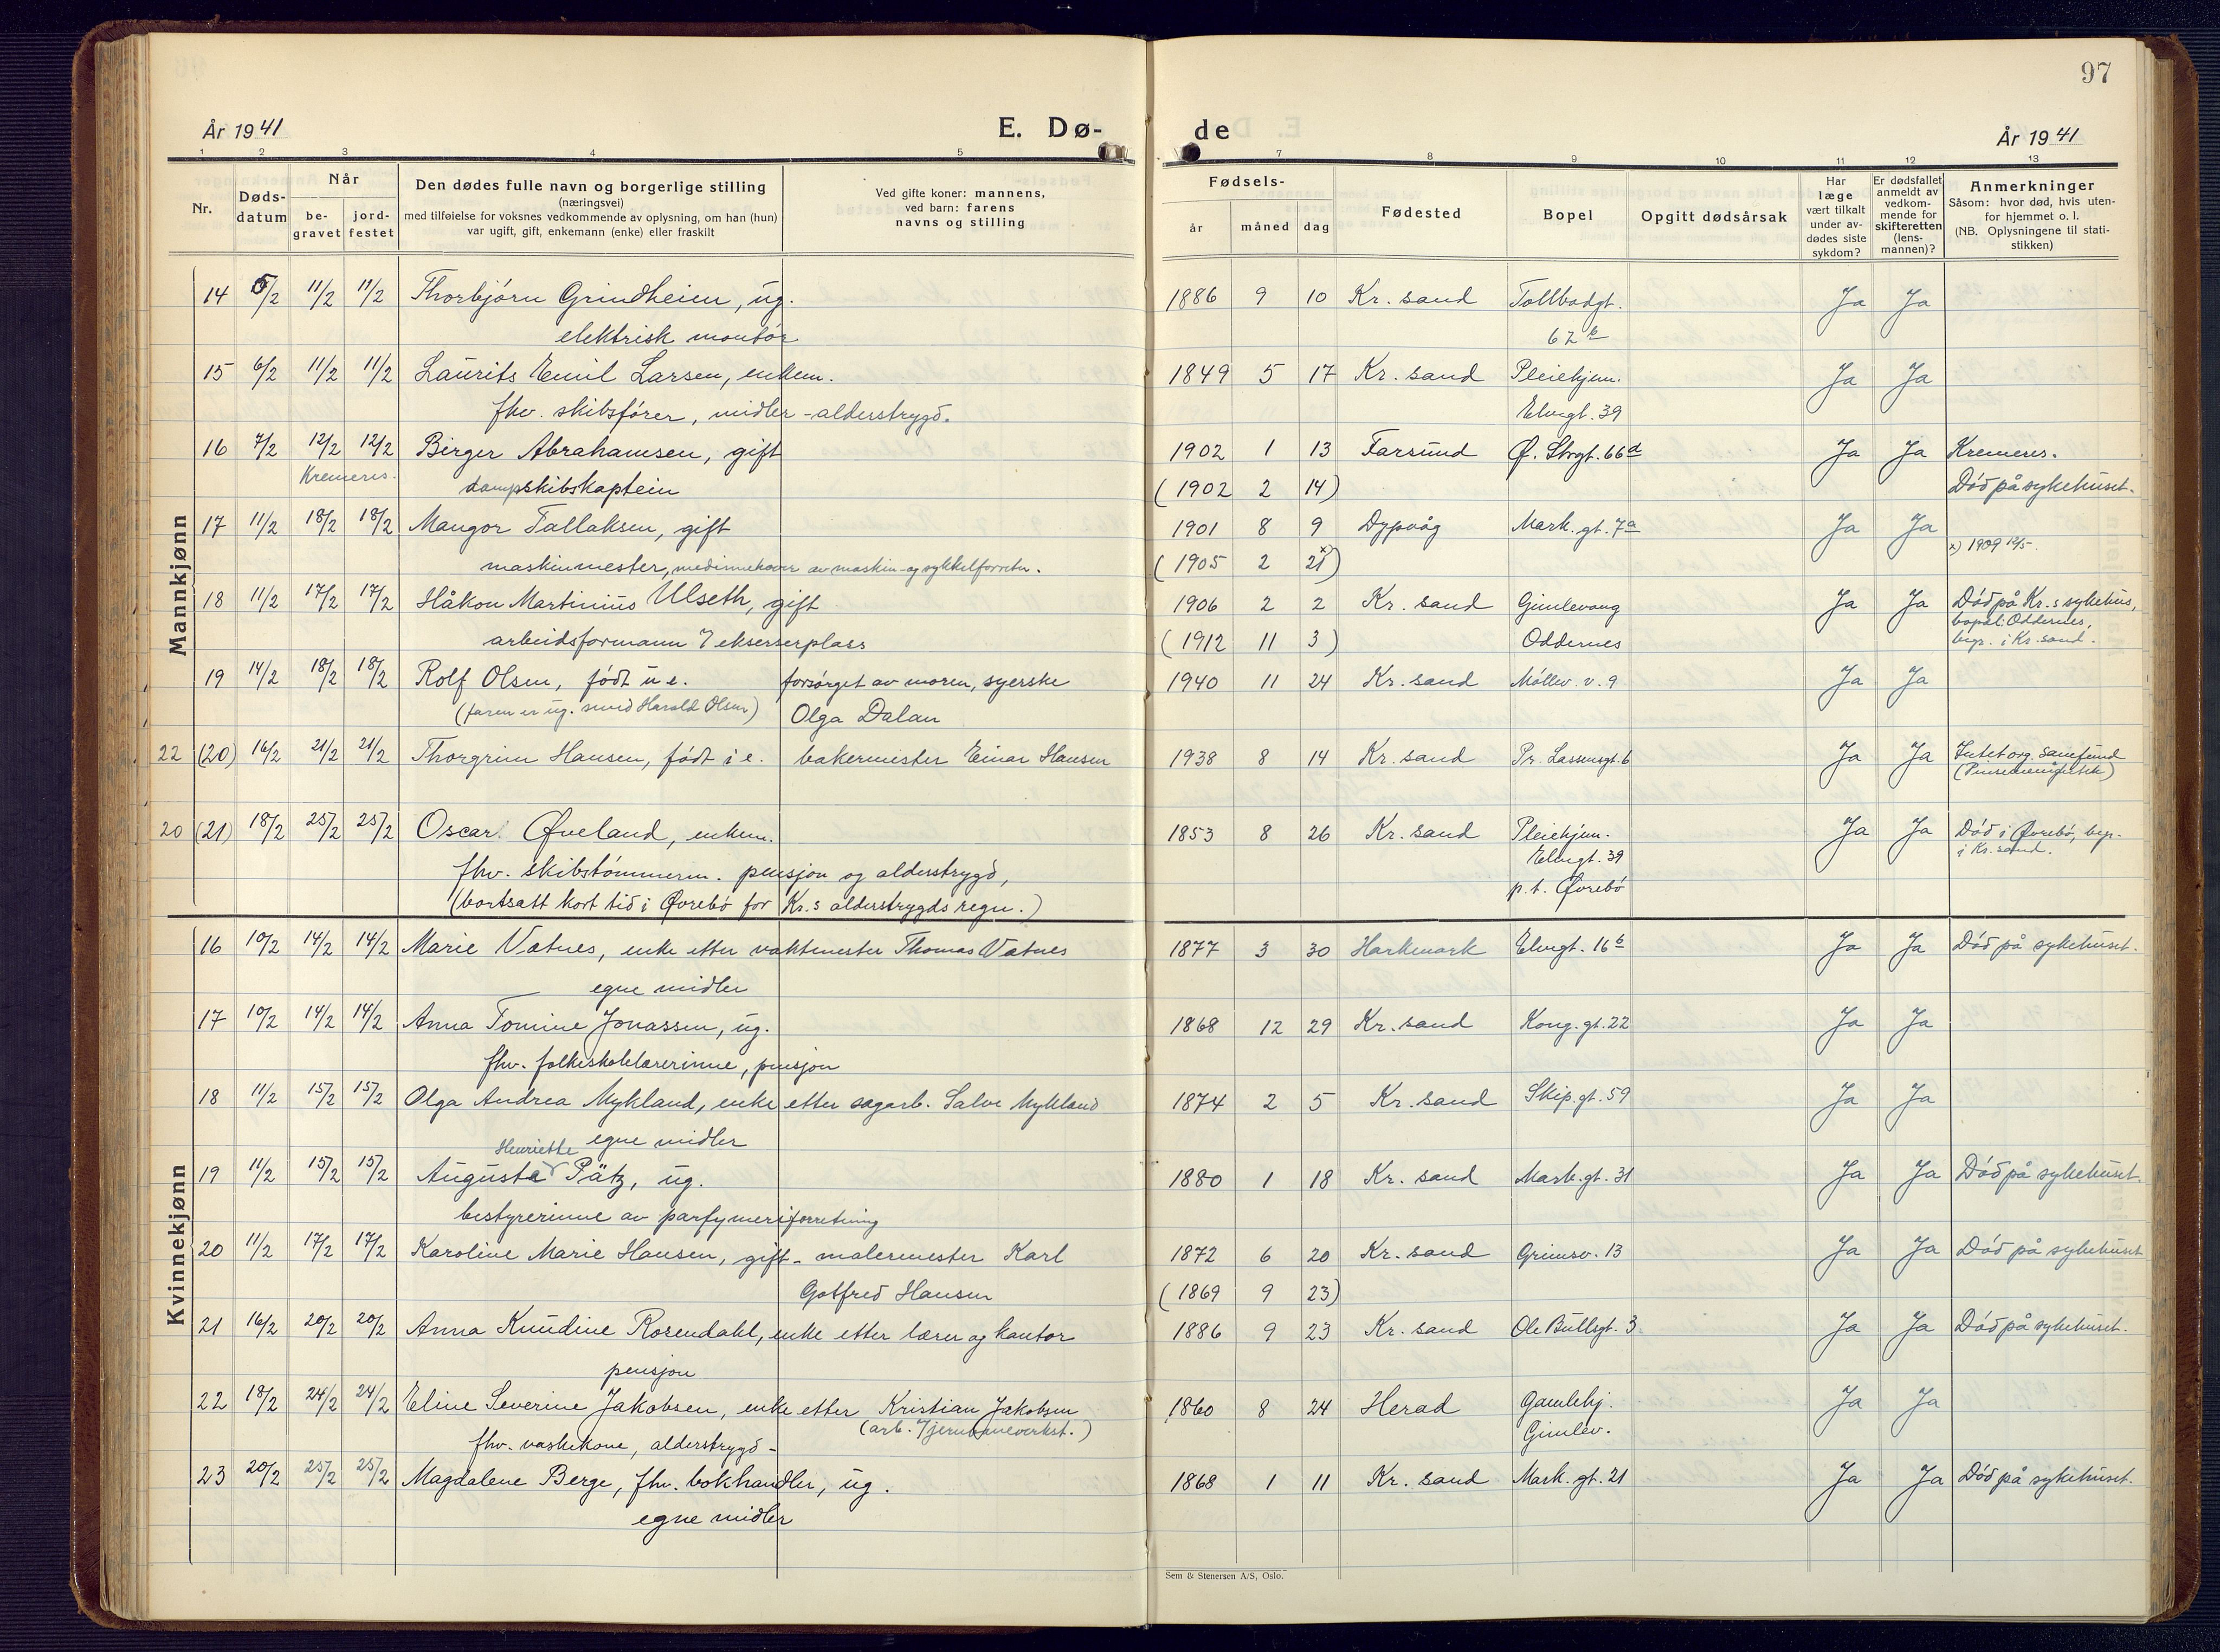 97
År 1941 E. Dø-
de År 1941
1 2 3 4 5
7 8 9 10 11 12 13
Nr.
Døds-
datum
Når
be-
gravet
jord-
festet
Den dødes fulle navn og borgerlige stilling
(næringsvei)
med tilføielse for voksnes vedkommende av oplysning, om han (hun)
var ugift, gift, enkemann (enke) eller fraskilt
Ved gifte koner: mannens,
ved barn: farens
navns og stilling
Fødsels-
år måned dag
Fødested
Bopel
Opgitt dødsårsak
Har
læge
vært tilkalt
under av-
dødes siste
sykdom?
Er dødsfallet
anmeldt av
vedkom-
mende for
skifteretten
(lens-
mannen)?
Anmerkninger
Såsom: hvor død, hvis uten-
for hjemmet o. l.
(NB. Oplysningene til stati-
stikken)
Mannkjønn
14 5/2 11/2 11/2 Thorbjørn Grindheim, ug. 1886 9 10 Kr. sand Tollbodgt. Ja Ja
elektrisk montør 62 b
15 6/2 11/2 11/2 Laurits Emil Larsen, enkem. 1849 5 17 Kr. sand Pleiehjem. Ja Ja
fhv. skibsfører, midler - alderstrygd. Elvegt. 39
16 7/2 12/2 12/2 Birger Abrahamsen, gift 1902 1 13 Farsund Ø. Strgt. 66 a Ja Ja Kremeres.
Kremeres. dampskibskaptein (1902 2 14) Død på sykehuset.
17 11/2 18/2 18/2 Mangor Tallaksen, gift 1901 8 9 Dypvåg Mark. gt. 7 a Ja Ja
maskinmester, medinnehaver av maskin- og sykkelforretn. (1905 2 21 x) x) 1909 12/5.
18 11/2 17/2 17/2 Håkon Martinius Ulseth, gift 1906 2 2 Kr. sand Gimlevang Ja Ja Død på Kr.s sykehus,
bopel: Oddernes,
arbeidsformann / eksserplass (1912 11 3) Oddernes begr. i Kr. sand.
19 14/2 18/2 18/2 Rolf Olsen, født u e. forsørget av moren, syerske 1940 11 24 Kr. sand Møllev. v. 9 Ja Ja
(faren er ug. smed Harald Olsen) Olga Dalan
22 (20) 16/2 21/2 21/2 Thorgrim Hansen, født i e. bakermester Einar Hansen 1938 8 14 Kr. sand Pr. Lassensgt. 6 Ja Ja Intet org. samfund
(Pinsemenighetek)
20 (21) 18/2 25/2 25/2 Oscar Øveland, enkem. 1853 8 26 Kr. sand Pleiehjem. Ja Ja Død i Øvrebø, begr.
i Kr. sand.
fhv. skibstømmerm. pensjon og alderstrygd, Elvegt. 39
(bortsatt kort tid i Øvrebø for Kr.s alderstrygds regn.) p.t. Øvrebø
Kvinnekjønn
16 10/2 14/2 14/2 Marie Vatnes, enke etter vaktmester Thomas Vatnes 1877 3 30 Harkmark Elvegt. 16 b Ja Ja Død på sykehuset.
egne midler
17 10/2 14/2 14/2 Anna Tomine Jonassen, ug. 1868 12 29 Kr. sand Kong. gt. 22 Ja Ja
fhv. folkeskolelærerinne, pensjon
18 11/2 15/2 15/2 Olga Andrea Mykland, enke etter sagarb. Salve Mykland 1874 2 5 Kr. sand Skip. gt. 59 Ja Ja
egne midler
Henriette
19 11/2 15/2 15/2 Augusta Pätz, ug. 1880 1 18 Kr. sand Mark. gt. 31 Ja Ja Død på sykehuset.
bestyrerinne av parfymeriforretning
20 11/2 17/2 17/2 Karoline Marie Hansen, gift - malermester Karl 1872 6 20 Kr. sand Grimsv. 13 Ja Ja Død på sykehuset
Gotfred Hansen (1869 9 23)
21 16/2 20/2 20/2 Anna Knudine Rosendahl, enke etter lærer og kantor 1886 9 23 Kr. sand Ole Bullsgt. 3 Ja Ja Død på sykehuset.
pensjon
22 18/2 24/2 24/2 Eline Severine Jakobsen, enke etter Kristian Jakobsen 1860 8 24 Herad Gamlehj. Ja Ja
(arb. / jernbaneverkst.)
fhv. vaskekone, alderstrygd - Gimlev.
23 20/2 25/2 25/2 Magdalene Berge, fhv. bokhandler, ug. 1868 1 11 Kr. sand Mark. gt. 21 Ja Ja Død på sykehuset.
egne midler
Sem & Stenersen A/S, Oslo.